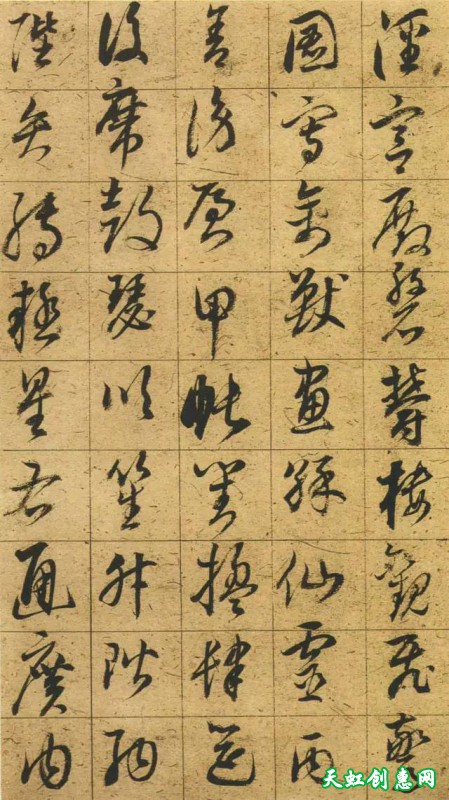 涇宮殿磐鬱樓觀飛驚
圖寫禽獸畫綵仙靈丙
舍傍啓甲帳對楹肆筵
設席鼓瑟吹笙升階納
陛弁轉疑星右通廣內
天虹创惠网